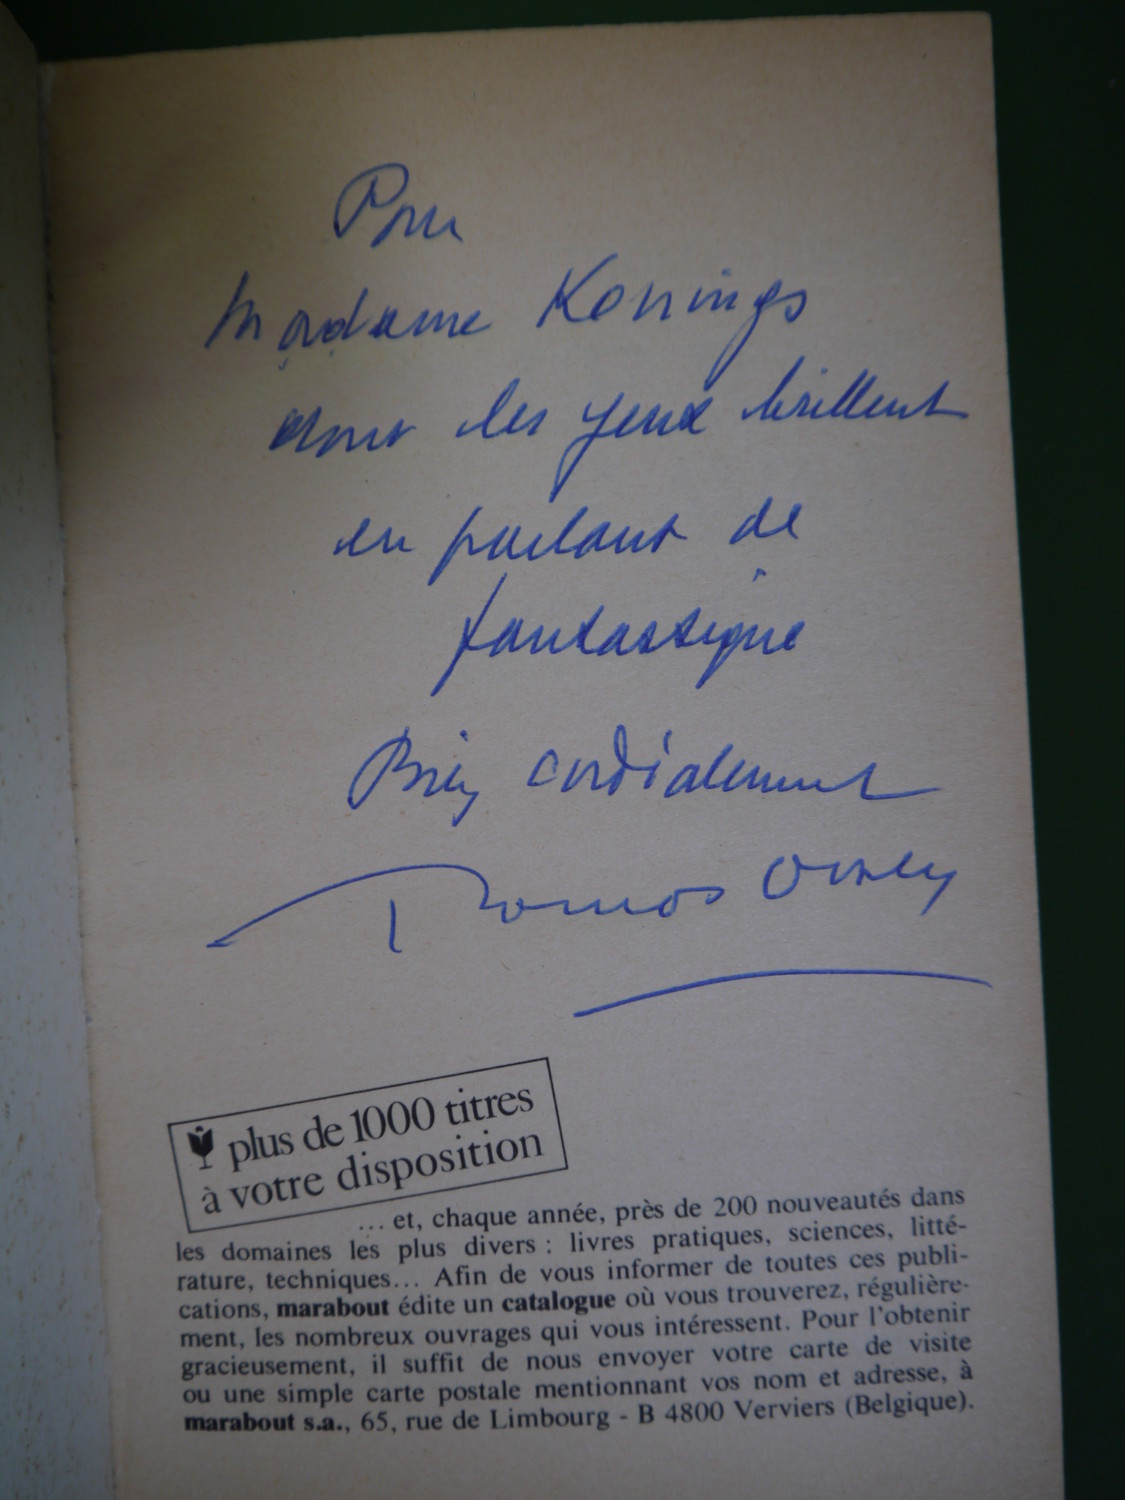 Pour
Madame Konings
dont les yeux brillent
en parlant de
fantastique
Bien cordialement
Thomas Owen
plus de 1000 titres
à votre disposition
... et, chaque année, près de 200 nouveautés dans
les domaines les plus divers : livres pratiques, sciences, litté-
rature, techniques... Afin de vous informer de toutes ces publi-
cations, marabout édite un catalogue où vous trouverez, régulière-
ment, les nombreux ouvrages qui vous intéressent. Pour l'obtenir
gracieusement, il suffit de nous envoyer votre carte de visite
ou une simple carte postale mentionnant vos nom et adresse, à
marabout s.a., 65, rue de Limbourg - B 4800 Verviers (Belgique).